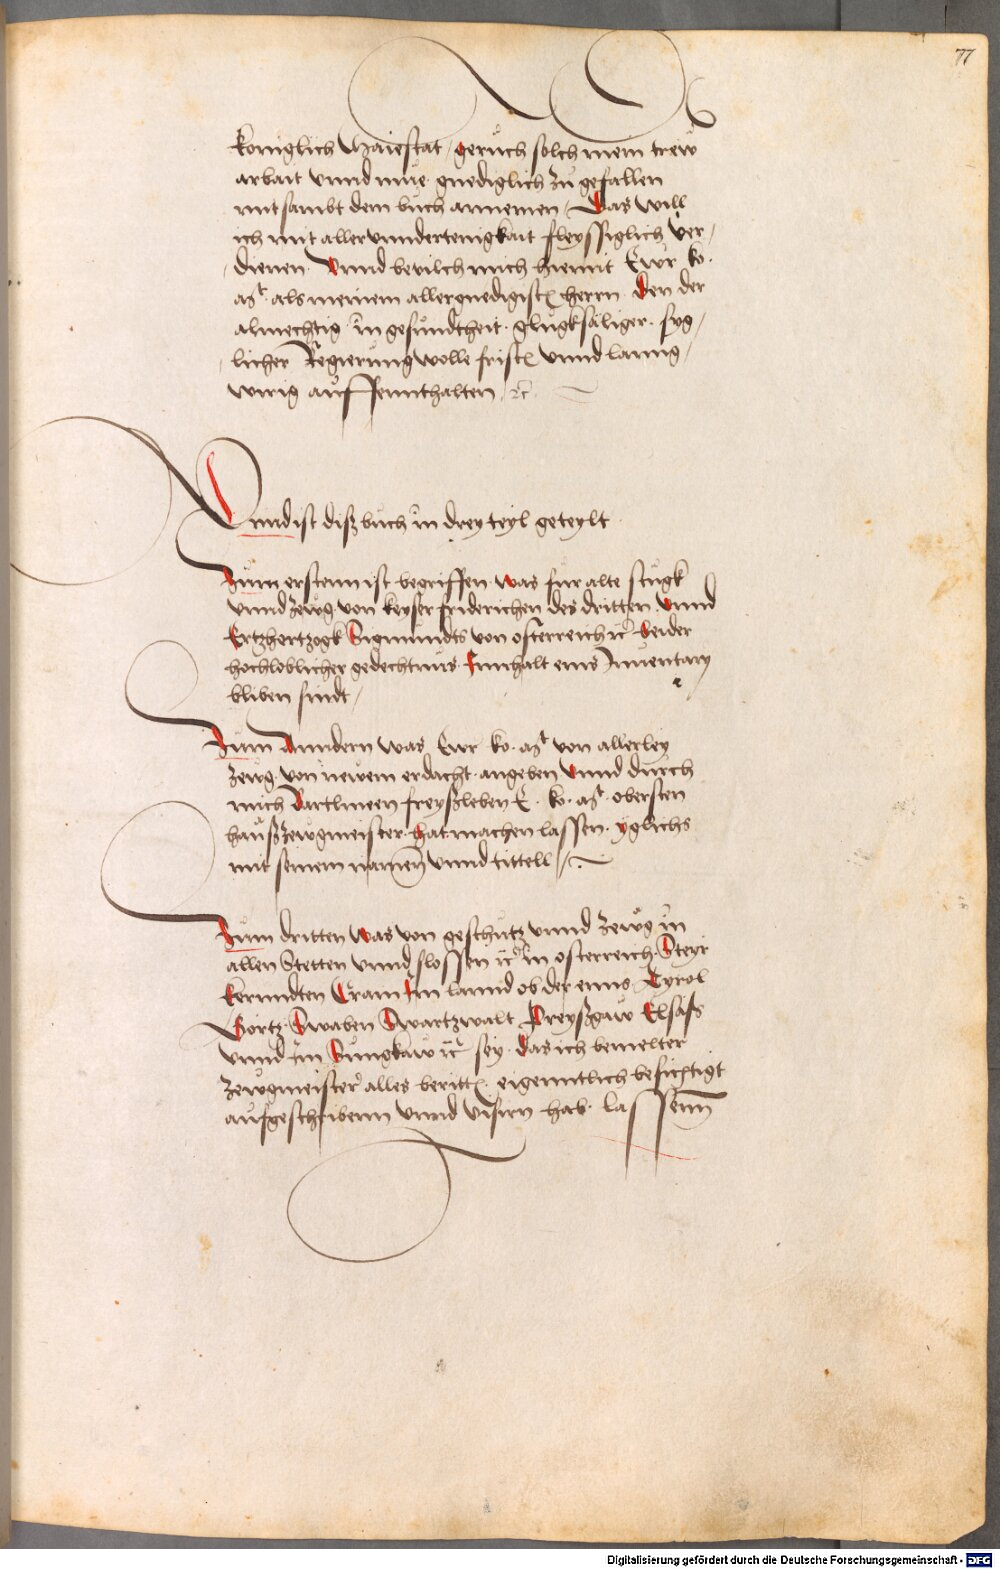 77
koniglich Maiestat / geruͦch solch mein trew
arbait vnnd mue gnediglich zuͦ gefallen
mit sambt dem buͦch annemen / Das will
ich mit aller vnndertenigkait fleyssiglich ver /
dienen. Vnnd bevilch mich hiemit Ewr ko.
Mt. als meinem allergnedigistn herrn. Den der
almechtig in gesuͦndtheit. gluͦgksäliger. syg /
licher Regieruͦng wolle fristn vnnd lanng /
wirig auͦffennthalten. rc.
Vnnd ist diß buͦch in drey teyl geteylt
Zuͦm erstenn ist begriffen was fuͦr alte stuͦgk
vnnd zewg. von keyser friderichen des dritten vnnd
Ertzhertzogk Sigmuͦndts von osterreich rc. beider
hochloblicher gedechtnuͦs Innhalt eins Inventary
bliben sindt /
Zuͦm Anndern was Ewr ko. Mt. von allerley
zewg. von newem erdacht. angeben vnnd duͦrch
mich Bartlmeen freyßleben E. ko. Mt. obersten
hauͦßzewgmeister. hat machen lassen. yglichs
mit seinem namen vnnd tittell /
Zuͦm dritten was von geschuͦtz vnnd zewg in
allen Stetten vnnd slossen rc. in osterreich Steyr
kernndten Crain Im lannd ob der enns Tyrol
Görtz. Swaben Swartzwalt Preyßgaw Elsass
vnnd Im Suͦngkaw rc. sey. das ich bemelter
zewgmeister alles berittn. eigenntlich besichtigt
auͦfgeschribenn vnnd visirn hab. lassenn
Digitalisierung gefördert durch die Deutsche Forschungsgemeinschaft - DFG